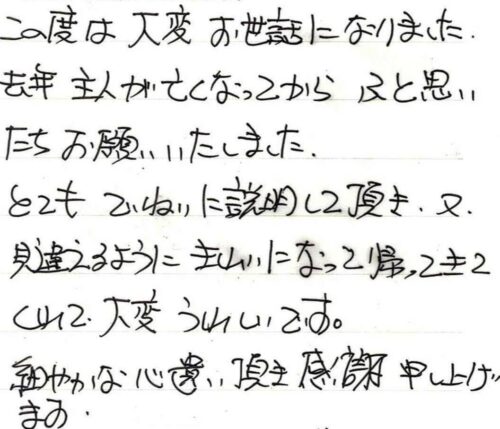 この度は 大変 お世話になりました.
去年 主人が亡くなってから 又と思い
たち お願いいたしました.
とても ていねいに説明して頂き. 又.
見違えるように きれいになって帰ってきて
くれて. 大変 うれしいです。
細やかな心遣い 頂き 感謝 申し上げ
ます.